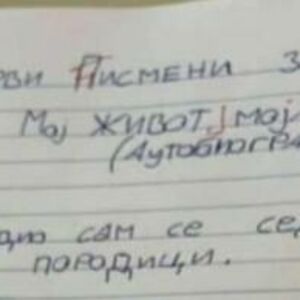 рви Писмени З
Мој живот, мој
(Аутобиогра
дио сам се сед
породици.